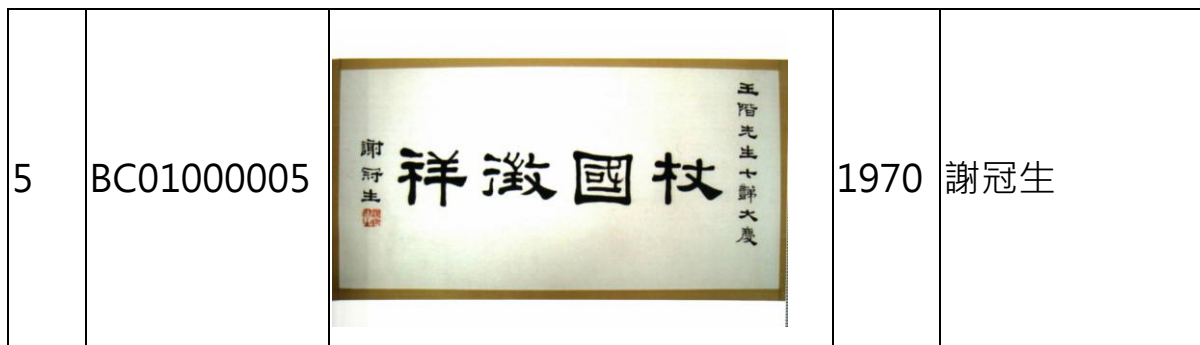 5
BC01000005
玉階先生七大慶
杖國徵祥
謝冠生
1970
謝冠生